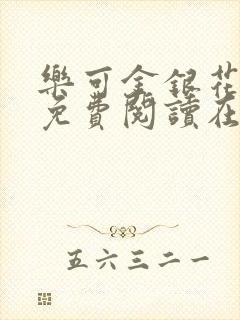 樂可金銀花
免費閱讀在
五六三二一